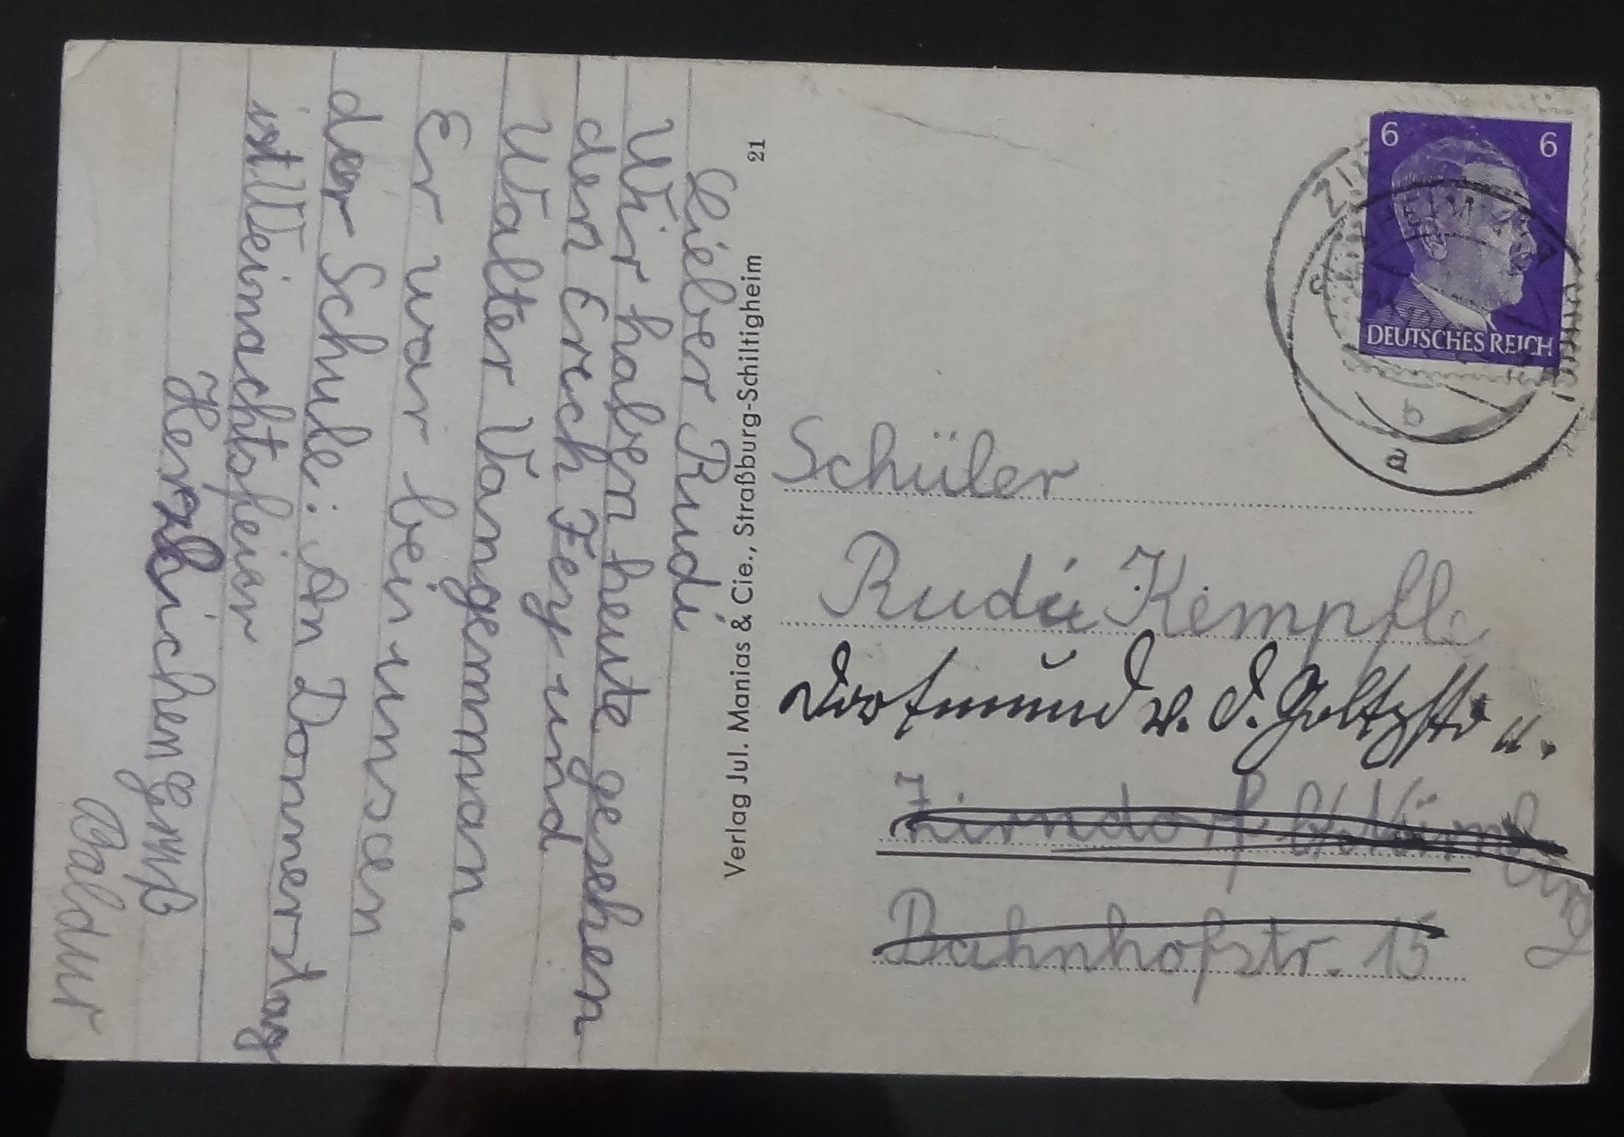 Lieber Rudi
Wir haben heute gesehen
den Erich Fey und
Walter Vangemman.
Er war bei unsen
der Schule: An Donnerstag
ist Weinachtsfeier
Herzlichen Gruß
Baldur
21
Verlag Jul. Manias & Cie., Straßburg-Schiltigheim
6 6
DEUTSCHES REICH
b
a
Schüler
Rudi Kempfle
Dortmund v. d. Goltzstr
Zirndorf b/Nürnberg
Bahnhofstr. 15